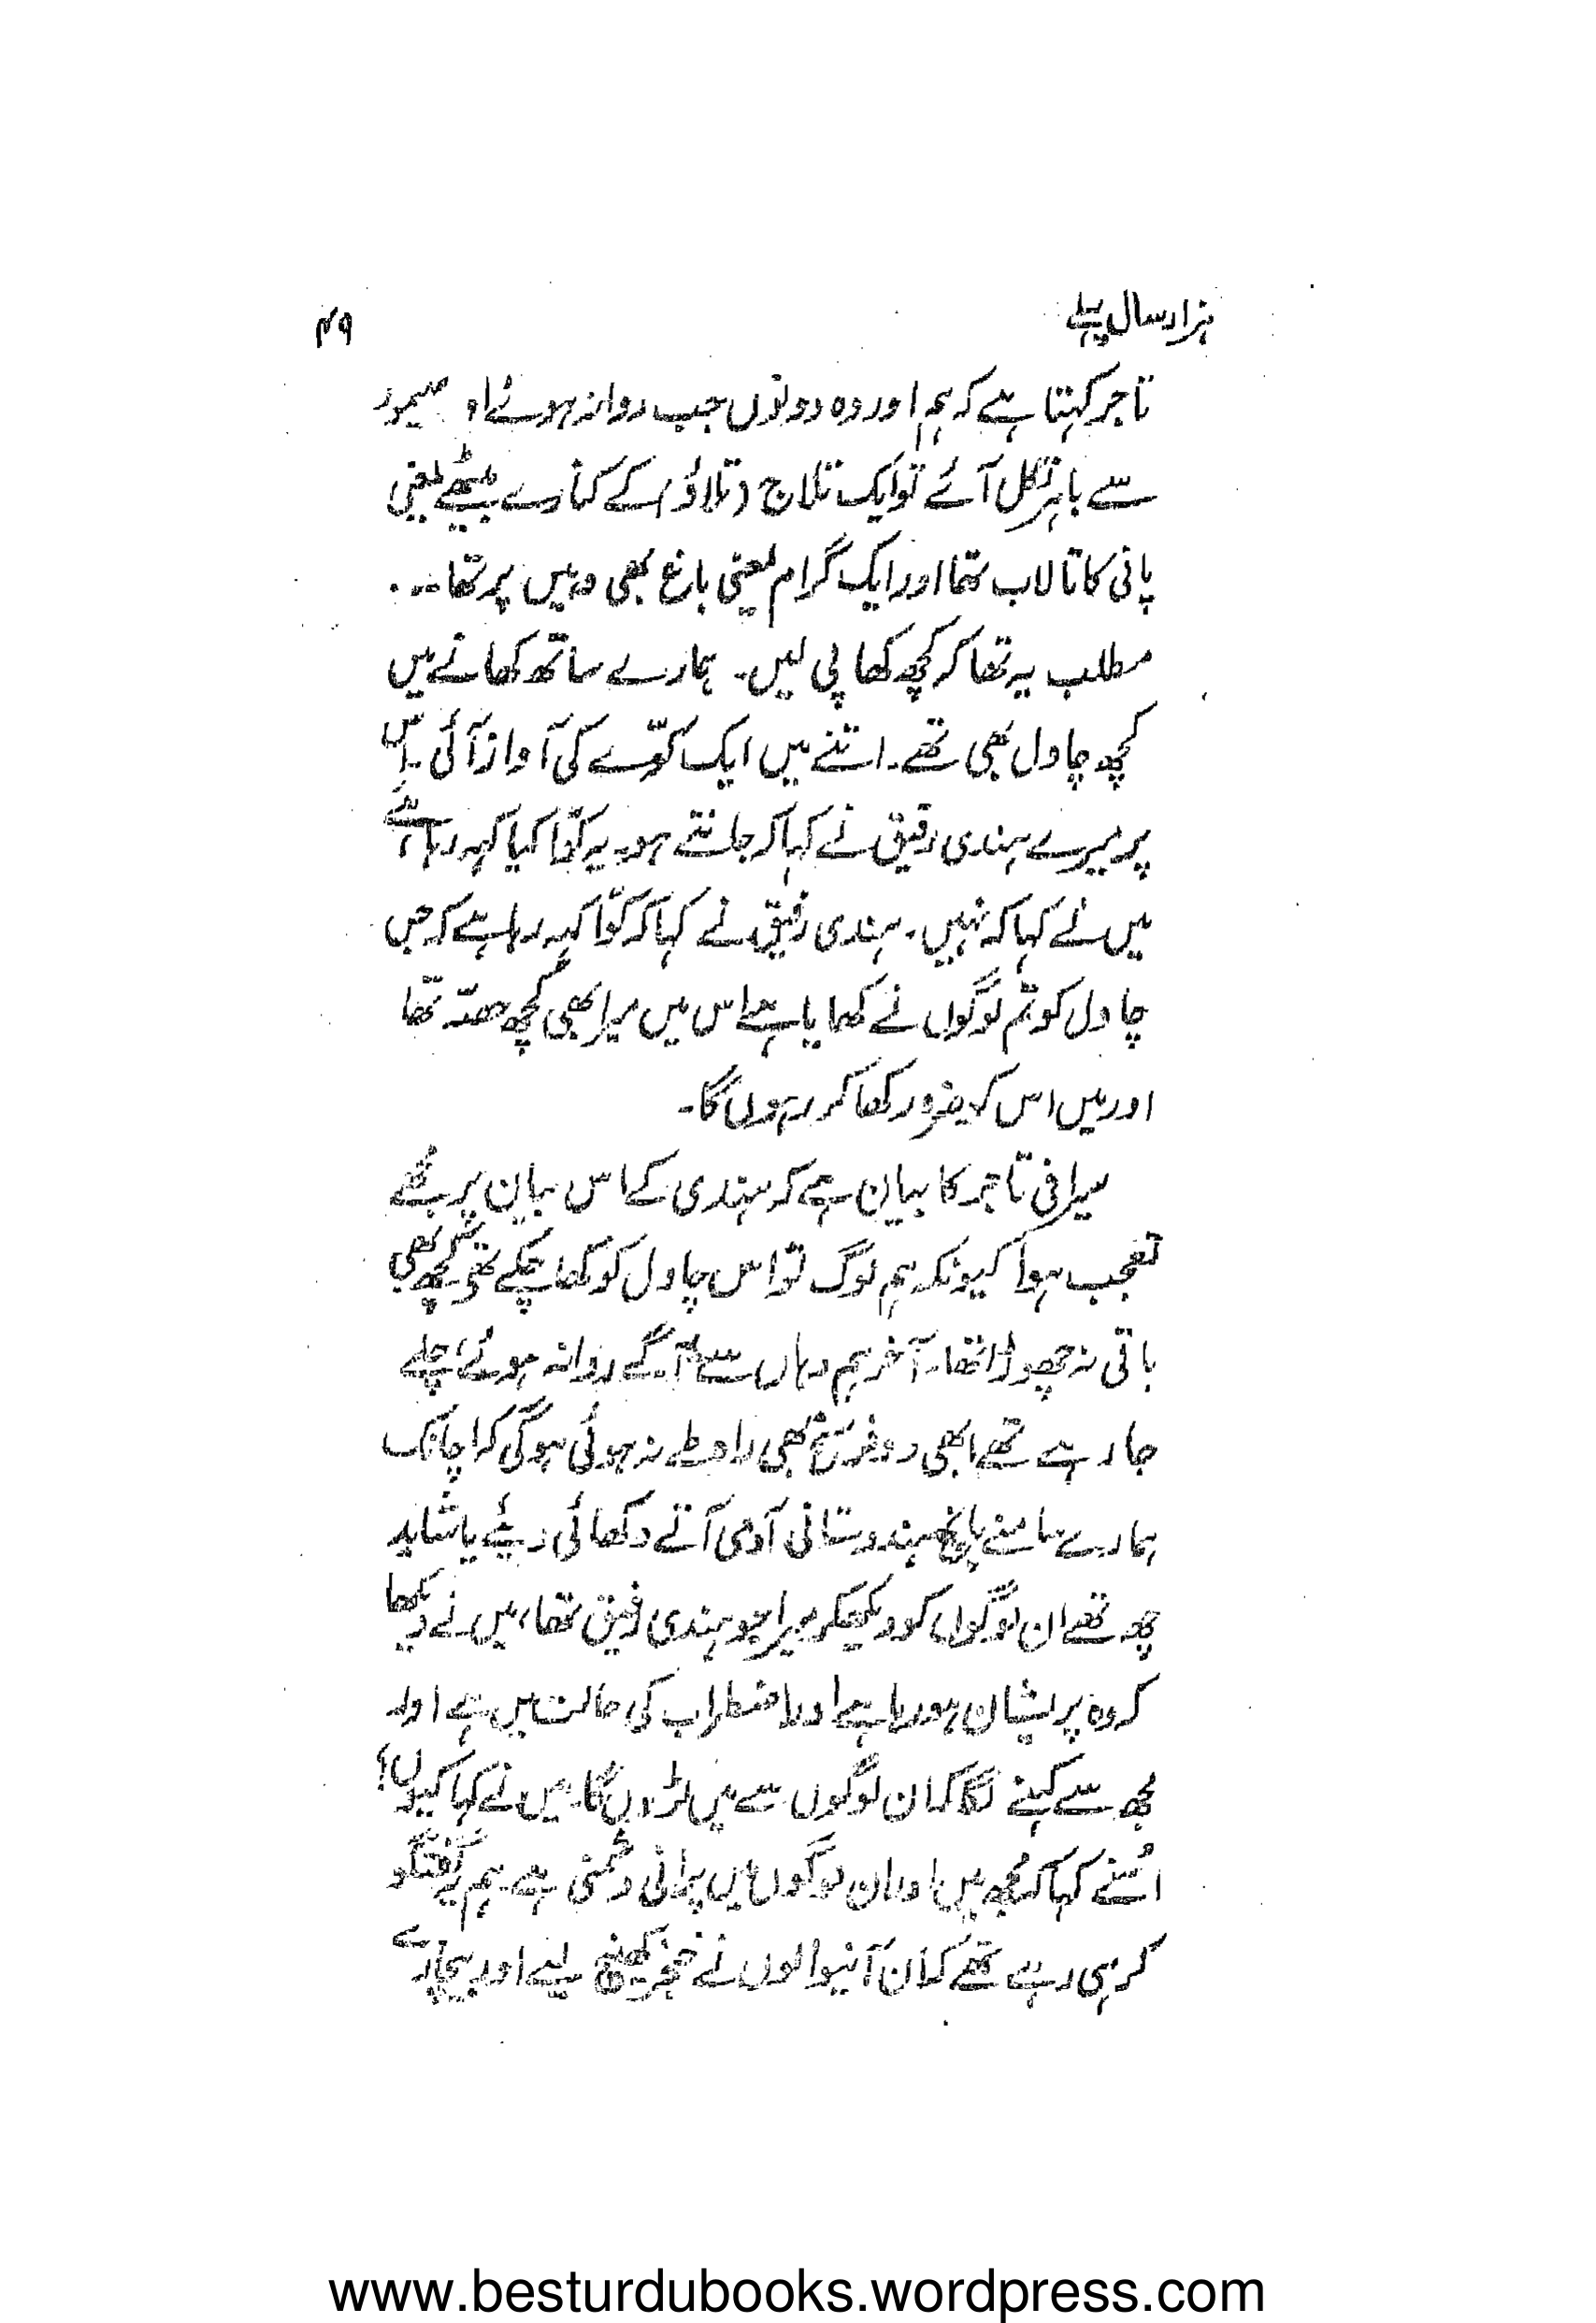 ہزار سال پہلے ۴۹
تاجر کہتا ہے کہ ہم اور وہ دونوں جب روانہ ہوئے او صیمور
سے باہر نکل آئے تو ایک تلاج (تلاؤ) کے کنارے بیٹھے یعنی
پانی کا تالاب تھا اور ایک گرام یعنی باغ بھی وہیں پر تھا۔۔۔
مطلب یہ تھا کہ کچھ کھا پی لیں۔ ہمارے ساتھ کھانے میں
کچھ چاول بھی تھے۔ اتنے میں ایک کوّے کی آواز آئی۔ اس
پر میرے ہندی رفیق نے کہا کہ جانتے ہو۔ یہ کوّا کیا کہہ رہا ہے
میں نے کہا کہ نہیں۔ ہندی رفیق نے کہا کہ کوّا کہہ رہا ہے کہ جس
چاول کو تم لوگوں نے کھایا ہے اس میں میرا بھی کچھ حصّہ تھا
اور میں اس کو ضرور کھا کر رہوں گا۔
سیرافی تاجر کا بیان ہے کہ ہندی کے اس بیان پر مجھے
تعجب ہوا کیونکہ ہم لوگ تو اس چاول کو کھا چکے تھے کچھ بھی
باقی نہ چھوڑا تھا۔ آخر ہم وہاں سے آگے روانہ ہوئے، چلے
جا رہے تھے ابھی دو فرسخ بھی راہ طے نہ ہوئی ہوگی کہ اچانک
ہمارے سامنے پانچ ہندوستانی آدمی آتے دکھائی دیئے یا شاید
چھ تھے ان لوگوں کو دیکھکر میرا جو ہندی رفیق تھا، میں نے دیکھا
کہ وہ پریشان ہو رہا ہے اور اضطراب کی حالت میں ہے اور
مجھ سے کہنے لگا کہ ان لوگوں سے میں لڑوں گا۔ میں نے کہا کیوں؟
اُسنے کہا کہ مجھ میں اور ان لوگوں میں پرانی دشمنی ہے۔ ہم یہ گفتگو
کر ہی رہے تھے کہ ان آنیوالوں نے خنجر کھینچ لیے اور بیچارے
www.besturdubooks.wordpress.com